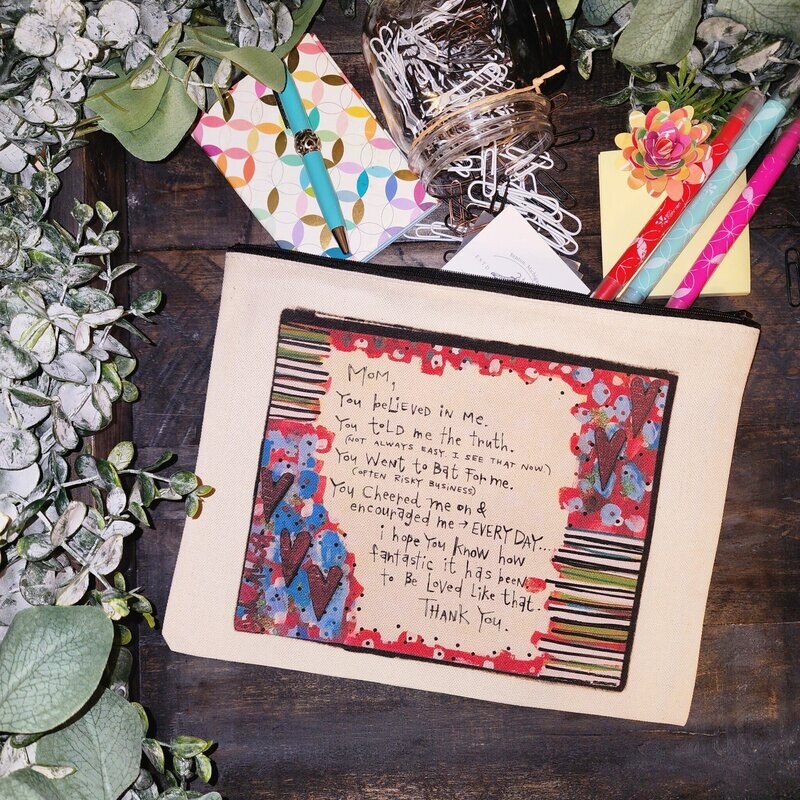 Mom,
You beLIEVED IN ME.
You toLD me the truth.
(NOT ALWAYS EASY. I SEE THAT NOW.)
You Went to Bat For me.
(OFTEN RISKY BUSINESS)
You Cheered me on &
encouraged me → EVERY DAY...
i hope You Know how
fantastic it has been
to Be Loved Like that.
THANK YOU.